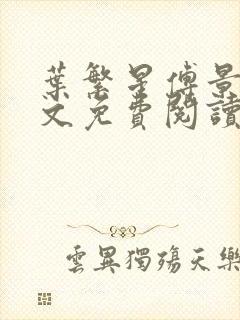 葉繁星傅景
文免費閱讀
雲異獨殤天樂